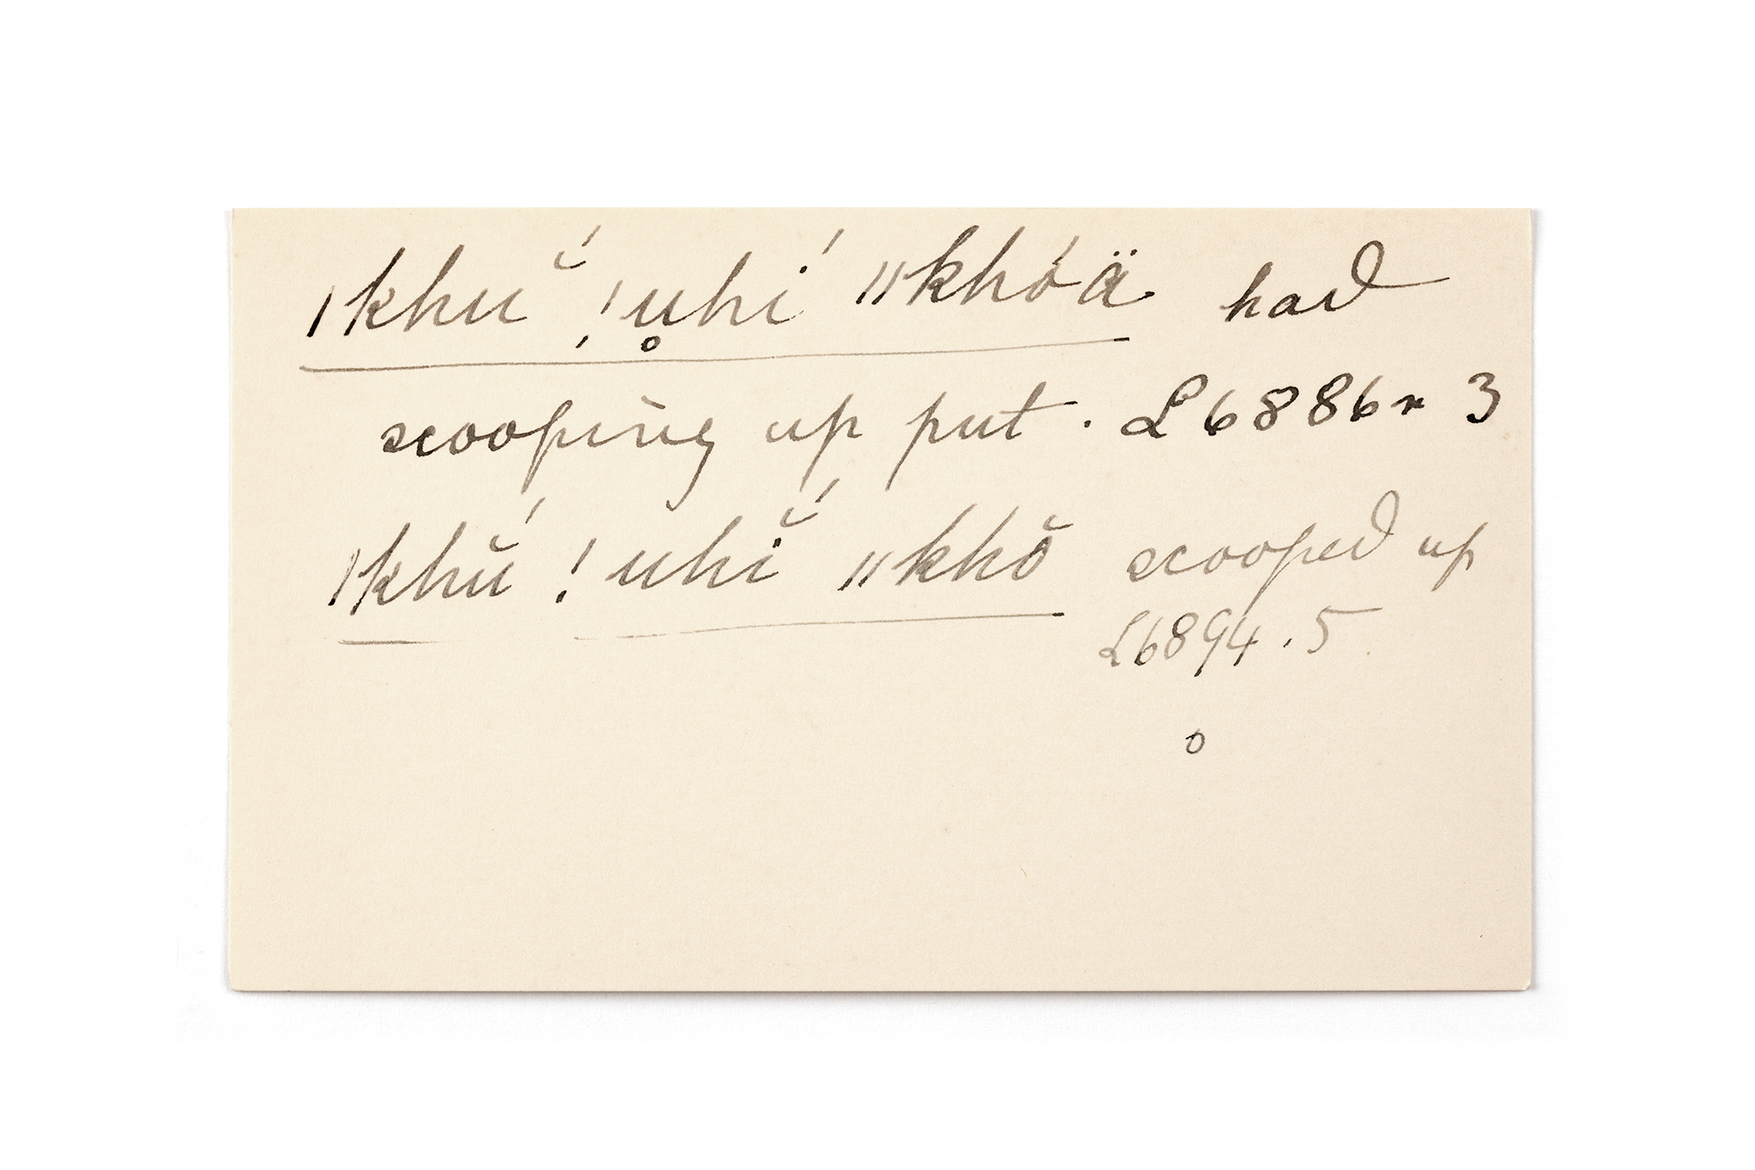 |khŭ́ !u̥hí ||khóä had
scooping up put. L6886r 3
|khŭ́ !uhĭ́ ||khŏ scooped up
L6894.5
o